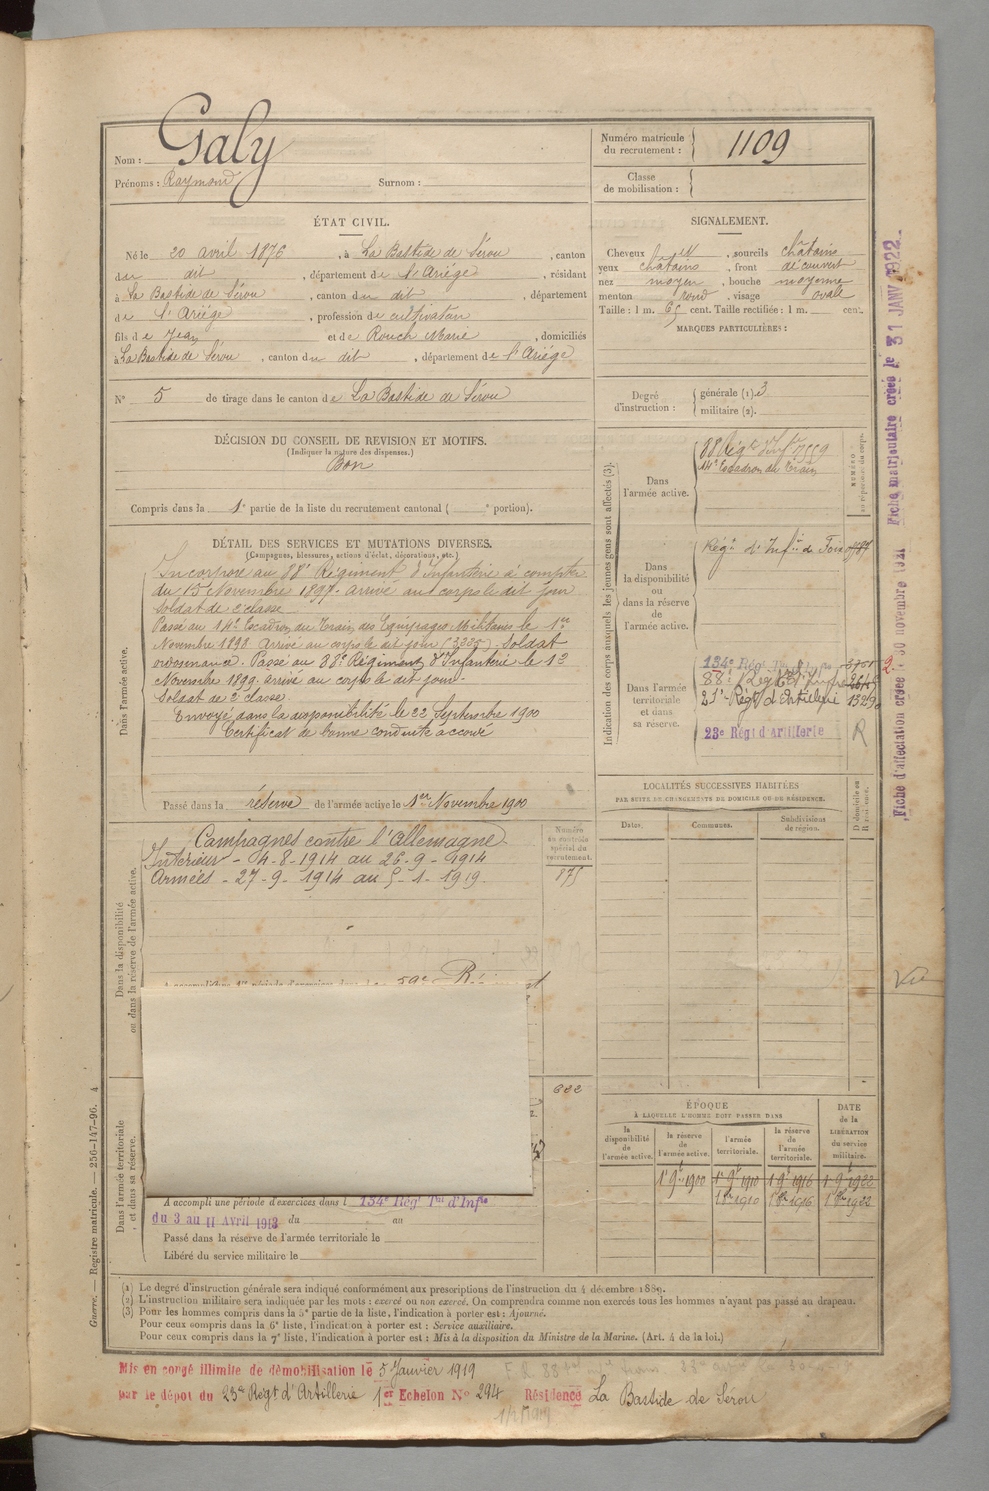 Nom : Galy
Prénoms : Raymond Surnom :
Numéro matricule du recrutement : 1109
Classe de mobilisation :
ÉTAT CIVIL.
Né le 20 avril 1876, à La Bastide de Sérou, canton
du dit, département de l'Ariège, résidant
à La Bastide de Sérou, canton du dit, département
de l'Ariège, profession de cultivateur
fils de Jean et de Rouch Marie, domiciliés
à La Bastide de Sérou, canton du dit, département de l'Ariège
N° 5 de tirage dans le canton de La Bastide de Sérou
SIGNALEMENT.
Cheveux, sourcils châtains
yeux châtains, front découvert
nez moyen, bouche moyenne
menton rond, visage ovale
Taille : 1 m. 65 cent. Taille rectifiée : 1 m. cent.
MARQUES PARTICULIÈRES :
Degré d'instruction : générale (1) 3
militaire (2).
DÉCISION DU CONSEIL DE REVISION ET MOTIFS.
(Indiquer la nature des dispenses.)
Bon
Compris dans la 1e partie de la liste du recrutement cantonal ( e portion).
DÉTAIL DES SERVICES ET MUTATIONS DIVERSES.
(Campagnes, blessures, actions d'éclat, décorations, etc.)
Dans l'armée active.
Incorporé au 88e Régiment d'Infanterie à compter
du 15 Novembre 1897. Arrivé au corps le dit jour
Soldat de 2e classe
Passé au 14e Escadron du Train des Equipages Militaires le 1er
Novembre 1898 Arrivé au corps le dit jour Soldat
ordonnance. Passé au 88e Régiment d'Infanterie le 12
Novembre 1899. arrivé au corps le dit jour.
Soldat de 2e classe
Envoyé dans la disponibilité le 22 Septembre 1900
Certificat de bonne conduite accordé
Passé dans la réserve de l'armée active le 1er Novembre 1900
Indication des corps auxquels les jeunes gens sont affectés (3).
NUMÉRO au répertoire du corps.
Dans l'armée active.
88 Régt d'Infie
14e Escadron du Train
Dans la disponibilité ou dans la réserve de l'armée active.
Régt d'Infie de Foix
Dans l'armée territoriale et dans sa réserve.
134e Régt
88e Régt d'Infie
23e Régt d'Artillerie
23e Régt d'Artillerie R
Dans la disponibilité ou dans la réserve de l'armée active.
Campagnes contre l'Allemagne
Intérieur - 4-8-1914 au 26-9-1914
Armées - 27-9-1914 au 5-1-1919.
Numéro au contrôle spécial du recrutement.
875
59e
622
LOCALITÉS SUCCESSIVES HABITÉES
PAR SUITE DE CHANGEMENTS DE DOMICILE OU DE RÉSIDENCE.
Dates. Communes. Subdivisions de région. D domicile ou R résidence.
ÉPOQUE
À LAQUELLE L'HOMME DOIT PASSER DANS
la disponibilité de l'armée active. la réserve de l'armée active. l'armée territoriale. la réserve de l'armée territoriale.
DATE de la LIBÉRATION du service militaire.
1r 9bre 1900 1r 9bre 1910 1r 9bre 1916 1r 9bre 1922
1910 1916 1922
Dans l'armée territoriale et dans sa réserve.
A accompli une période d'exercices dans l 134e Régt Tal d'Infie
du 3 au 11 Avril 1913 du au
Passé dans la réserve de l'armée territoriale le
Libéré du service militaire le
(1) Le degré d'instruction générale sera indiqué conformément aux prescriptions de l'instruction du 4 décembre 1889.
(2) L'instruction militaire sera indiquée par les mots : exercé ou non exercé. On comprendra comme non exercés tous les hommes n'ayant pas passé au drapeau.
(3) Pour les hommes compris dans la 5e partie de la liste, l'indication à porter est : Ajourné.
Pour ceux compris dans la 6e liste, l'indication à porter est : Service auxiliaire.
Pour ceux compris dans la 7e liste, l'indication à porter est : Mis à la disposition du Ministre de la Marine. (Art. 4 de la loi.)
Mis en congé illimité de démobilisation le 5 Janvier 1919
par le dépôt du 23e Régt d'Artillerie 1er Echelon N° 294 Résidence La Bastide de Serou
Guerre. — Registre matricule. — 256-147-96. 4
Fiche d'affectation créée le 30 novembre 1921 Fiche matriculaire créée le 31 JANV 1922
Vu